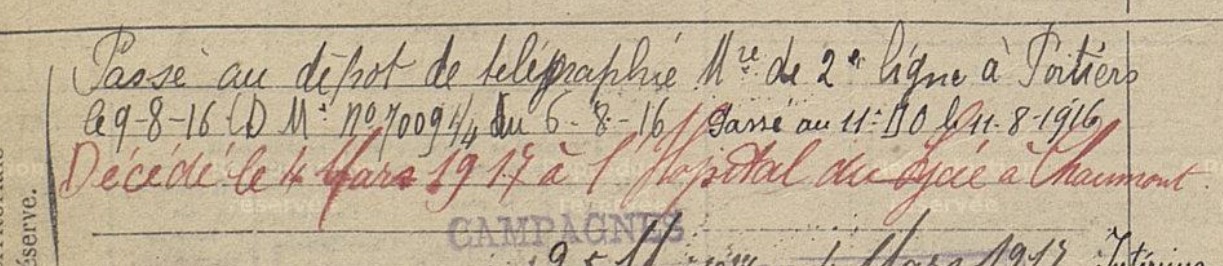 Passé au dépot de télégraphie Mre de 2e ligne à Poitiers
le 9-8-16 (D Mle no 70091/4 du 6-8-16) Passé au 11e DO le 11-8-1916
Décédé le 4 Mars 1917 à l'Hopital du Lycée à Chaumont
CAMPAGNES
Mars 1917 Intérieur
éserve.